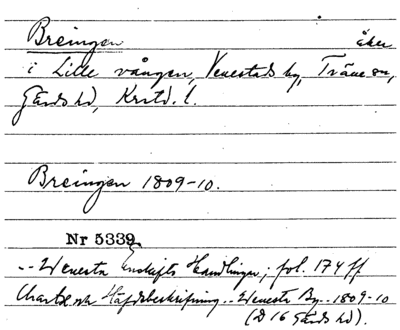 Breingen åker
i Lille vången, Venestads by, Träne sn,
Gärds hd, Krstd. l.
Breingen 1809-10.
Nr 5339
-- Wenesta Enskifts Handlingar; fol. 174 ff
Charta och Häfdebeskrifning .. Wenesta By .. 1809-10
(D 16 Gärds hd).